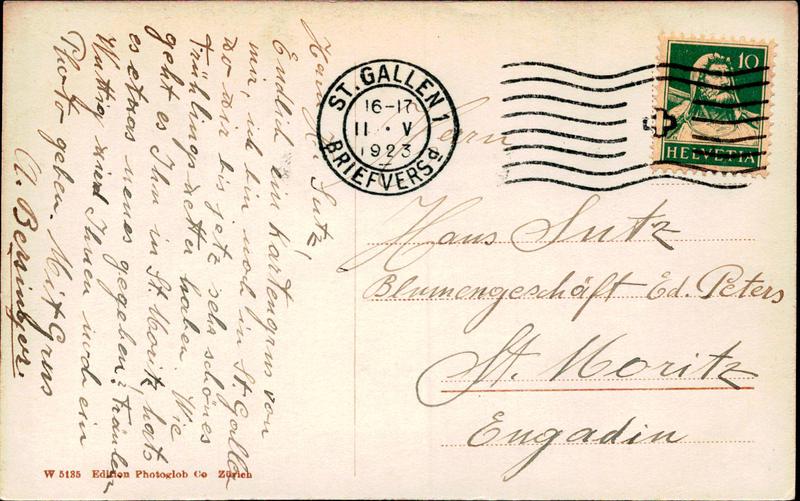 Hans H. Sutz,
Endlich ein Kartengrus von
mir, ich bin noch in St. Gallen
wo wir bis jetz sehr schönes
Frühlingswetter haben. Wie
geht es Ihn in St. Moritz, hats
es etwas neues gegeben? Fräulein
Wuttig wird Ihnen noch ein
Photo geben. Mit Grus
A. Bersinger.
ST. GALLEN 1
16-17
11 · V
1923
BRIEFVERSd
10
HELVETIA
Herrn
Hans Sutz
Blumengeschäft Ed. Peters
St. Moritz
Engadin
W 5135 Edition Photoglob Co Zürich